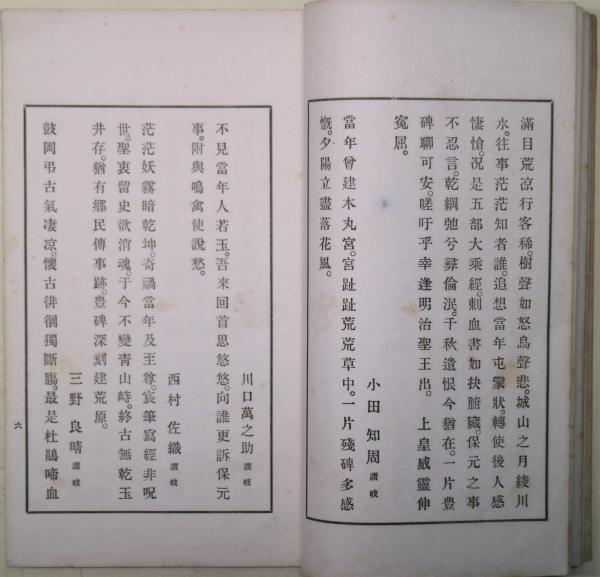 滿目荒凉行客稀。樹聲如怒鳥聲悲。城山之月綾川
水。往事茫茫知者誰。追想當年屯蒙狀。轉使後人感
悽愴。况是五部大乘經。刺血書如抉腑臟。保元之事
不忍言。乾綱弛兮彛倫泯。千秋遺恨今猶在。一片豊
碑聊可安。嗟吁乎幸逢明治聖王出。上皇威靈伸
寃屈。
小田知周 讃岐
當年曾建木丸宮。宮趾趾荒荒草中。一片殘碑多感
慨。夕陽立盡落花風。
川口萬之助 讃岐
不見當年人若玉。吾來回首思悠悠。向誰更訴保元
事。附與鳴禽使說愁。
西村佐織 讃岐
茫茫妖霧暗乾坤。奇禍當年及至尊。宸筆寫經非呪
世。聖衷留史欲消魂。于今不變靑山峙。終古無乾玉
井存。猶有鄉民傳事跡。豊碑深刻建荒原。
三野良晴 讃岐
鼓岡弔古氣凄凉。懷古徘徊獨斷膓。最是杜鵑啼血
六